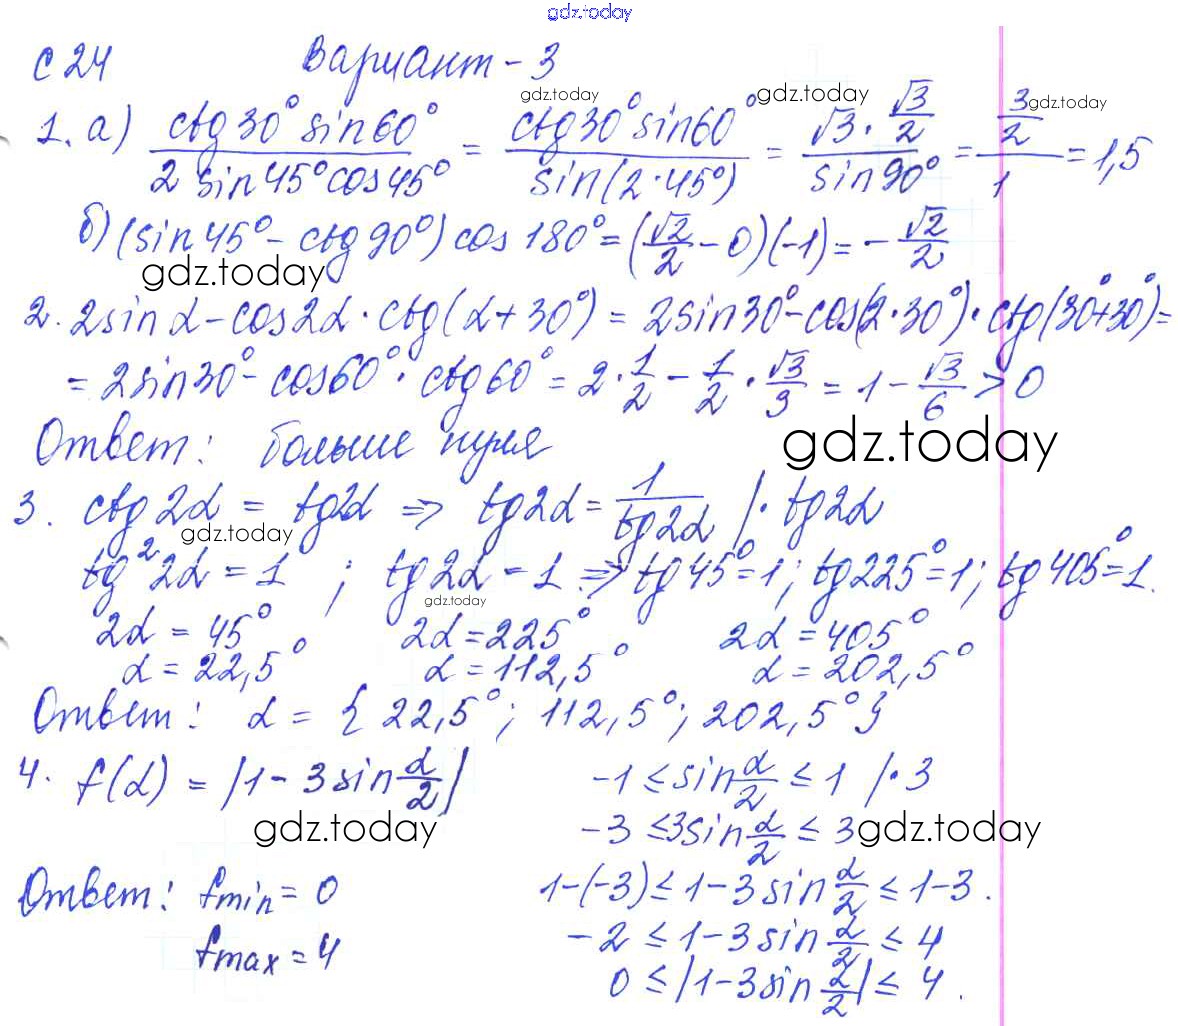 gdz.today
С 24 Вариант - 3
gdz.today gdz.today gdz.today
1. а) (ctg 30° sin 60°)/(2 sin 45° cos 45°) = (ctg 30° sin 60°)/(sin(2·45°)) = (√3 · √3/2)/(sin 90°) = (3/2)/1 = 1,5
б) (sin 45° - ctg 90°) cos 180° = (√2/2 - 0)(-1) = -√2/2
gdz.today
2. 2sin α - cos 2α · ctg(α + 30°) = 2sin 30° - cos(2·30°) · ctg(30° + 30°) =
= 2sin 30° - cos 60° · ctg 60° = 2 · 1/2 - 1/2 · √3/3 = 1 - √3/6 > 0
Ответ: больше нуля
gdz.today
3. ctg 2α = tg 2α => tg 2α = 1/tg 2α |· tg 2α
gdz.today
tg² 2α = 1 ; tg 2α - 1 => tg 45° = 1; tg 225° = 1; tg 405° = 1.
gdz.today
2α = 45° 2α = 225° 2α = 405°
α = 22,5° α = 112,5° α = 202,5°
Ответ: α = { 22,5°; 112,5°; 202,5° }
4. f(α) = |1 - 3 sin α/2| -1 ≤ sin α/2 ≤ 1 |· 3
gdz.today -3 ≤ 3sin α/2 ≤ 3 gdz.today
Ответ: fmin = 0 1-(-3) ≤ 1 - 3 sin α/2 ≤ 1-3.
fmax = 4 -2 ≤ 1 - 3 sin α/2 ≤ 4
0 ≤ |1 - 3 sin α/2| ≤ 4.